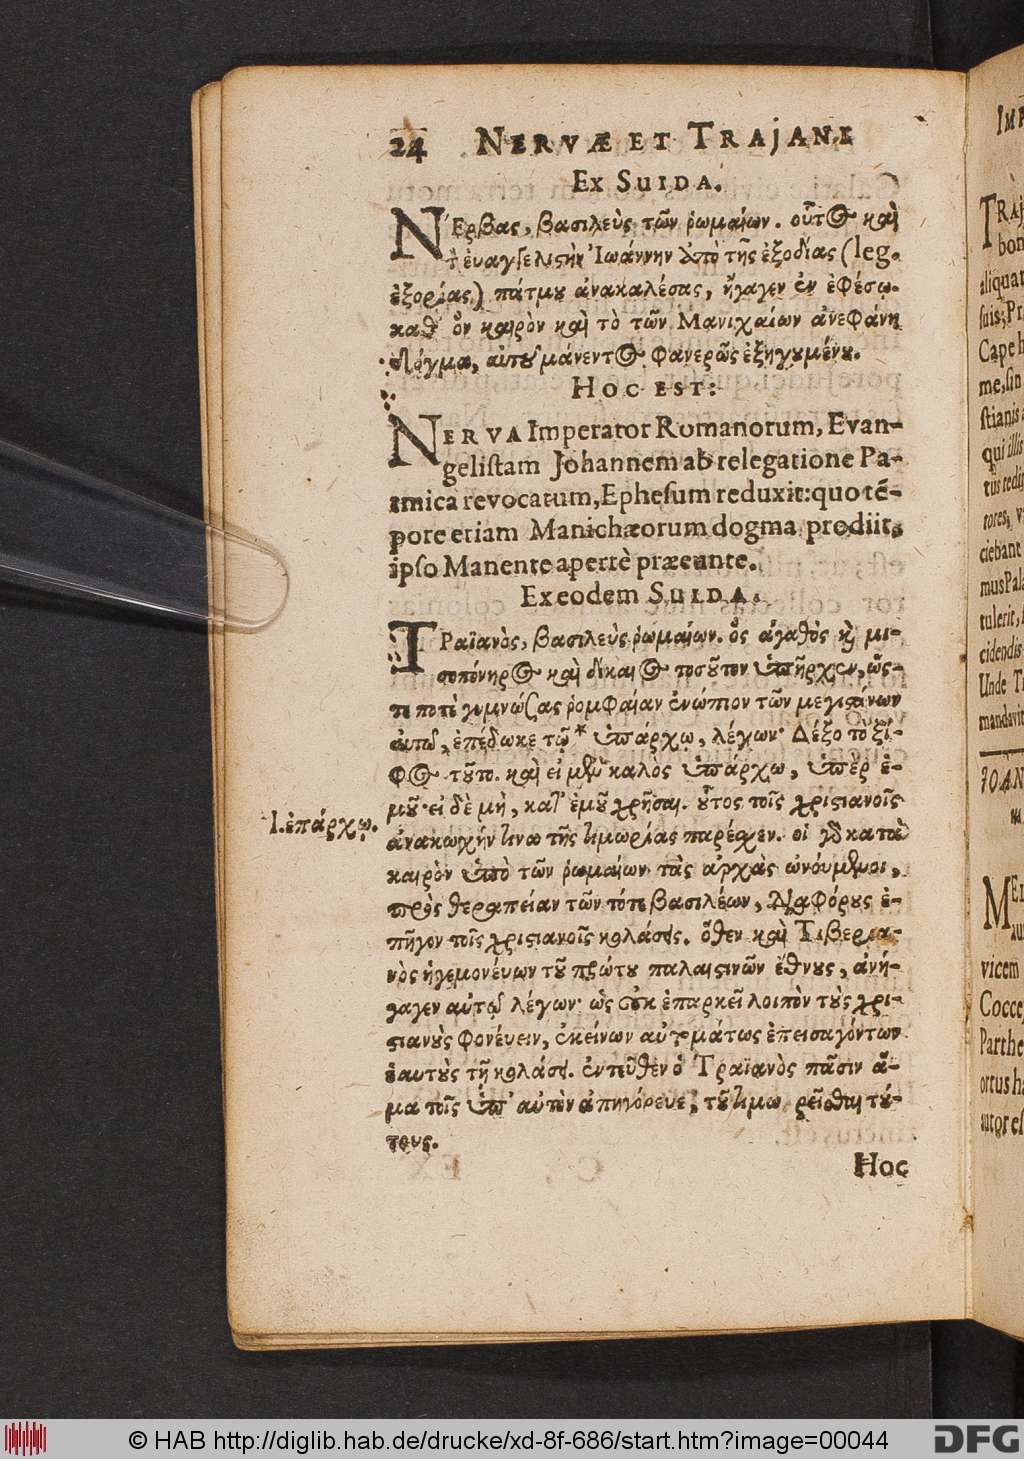 24 NERVÆ ET TRAJANI
EX SUIDA.
ΝΕρβας, βασιλεὺς τῶν ῥωμαίων. οὗτος καὶ
τ̀ ἐυαγγελιστὴν Ἰωάννην ἀπὸ τῆς ἐξοδίας (leg.
ἐξορίας) πάτμου ἀνακαλέσας, ἤγαγεν ἐν ἐφέσῳ.
καθ' ὃν καιρὸν καὶ τὸ τῶν Μανιχαίων ἀνεφάνη
δόγμα, αὐτοῦ μάνεντος φανερῶς ἐξηγουμένου.
HOC EST:
NERVA Imperator Romanorum, Evan-
gelistam Johannem ab relegatione Pa-
tmica revocatum, Ephesum reduxit: quo tē-
pore etiam Manichæorum dogma prodiit,
ipso Manente apertè præeunte.
Ex eodem SUIDA.
ΤΡαϊανὸς, βασιλεὺς ῥωμαίων. ὃς ἀγαθὸς καὶ μι-
σοπόνηρος καὶ δίκαιος τοσοῦτον ὑπῆρχεν, ὥς-
τε ποτὲ γυμνώσας ῥομφαίαν ἐνώπιον τῶν μεγιστάνων
αὐτοῦ, ἐπέδωκε τῷ * ὑπάρχῳ, λέγων· Δέξο τὸ ξί-
φος τοῦτο. καὶ εἰ μὲν καλὸς ὑπάρχω, ὑπὲρ ἐ-
μοῦ· εἰ δὲ μὴ, κατ' ἐμοῦ χρῆσαι. οὗτος τοῖς χριστιανοῖς
l. ἐπάρχῳ.
ἀνακωχήν τινα τῆς τιμωρίας παρέσχεν. οἱ γὰρ κατὰ
καιρὸν ὑπὸ τῶν ῥωμαίων τὰς ἀρχὰς ὠνούμενοι,
πρὸς θεραπείαν τῶν τότε βασιλέων, διαφόρους ἐ-
πῆγον τοῖς χριστιανοῖς κολάσεις. ὅθεν καὶ Τιβερια-
νὸς ἡγεμονέυων τοῦ πρώτου παλαιστινῶν ἔθνους, ἀνή-
γαγεν αὐτῷ λέγων· ὡς οὐκ ἐπαρκεῖ λοιπὸν τοὺς χρι-
στιανοὺς φονέυειν, ἐκείνων αὐτομάτως ἐπεισαγόντων
ἑαυτοὺς τῇ κολάσει. ἐντεῦθεν ὁ Τραϊανὸς πᾶσιν ἅ-
μα τοῖς ὑπ' αὐτὸν ἀπηγόρευε, τοῦ τιμωρεῖσθαι τού-
τους.
Hoc
IMP
TRAJ
bon
aliquat
suis; Pr
Cape h
me, sin
stianis
qui illis
tūs redi
rores, v
ciebant
mus Pala
tulerit,
cidendis
Unde T
mandavit
JOAN
MEL
vicem
Cocce
Parthe
ortus ha
autor es
© HAB http://diglib.hab.de/drucke/xd-8f-686/start.htm?image=00044
DFG